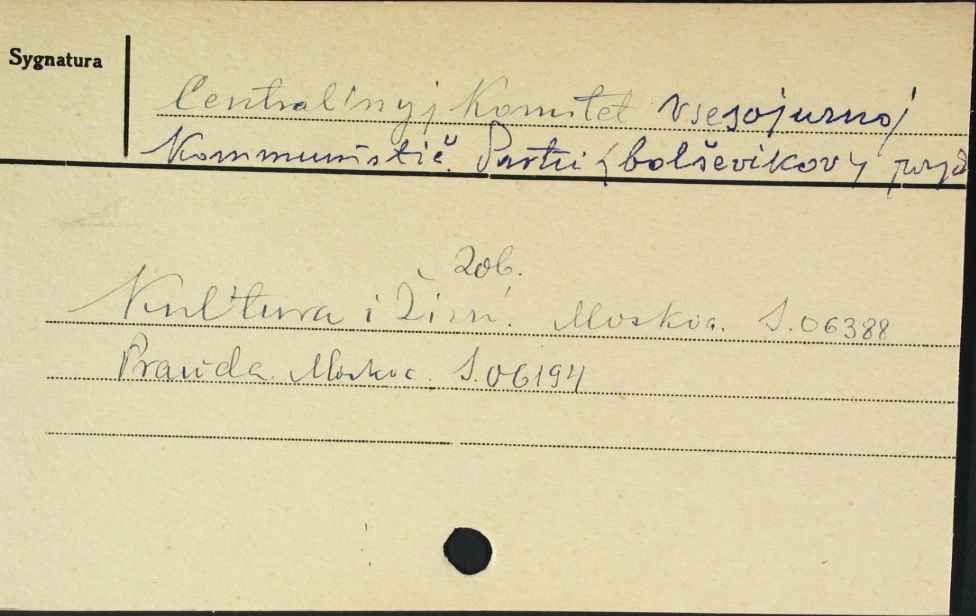 Sygnatura
Central'nyj Komitet Vsesojuznoj
Kommunistič. Partii (bolševikov)
Zob.
Kul'tura i Žizn'. Moskva. S.06388
Prawda. Moskva. S.06194